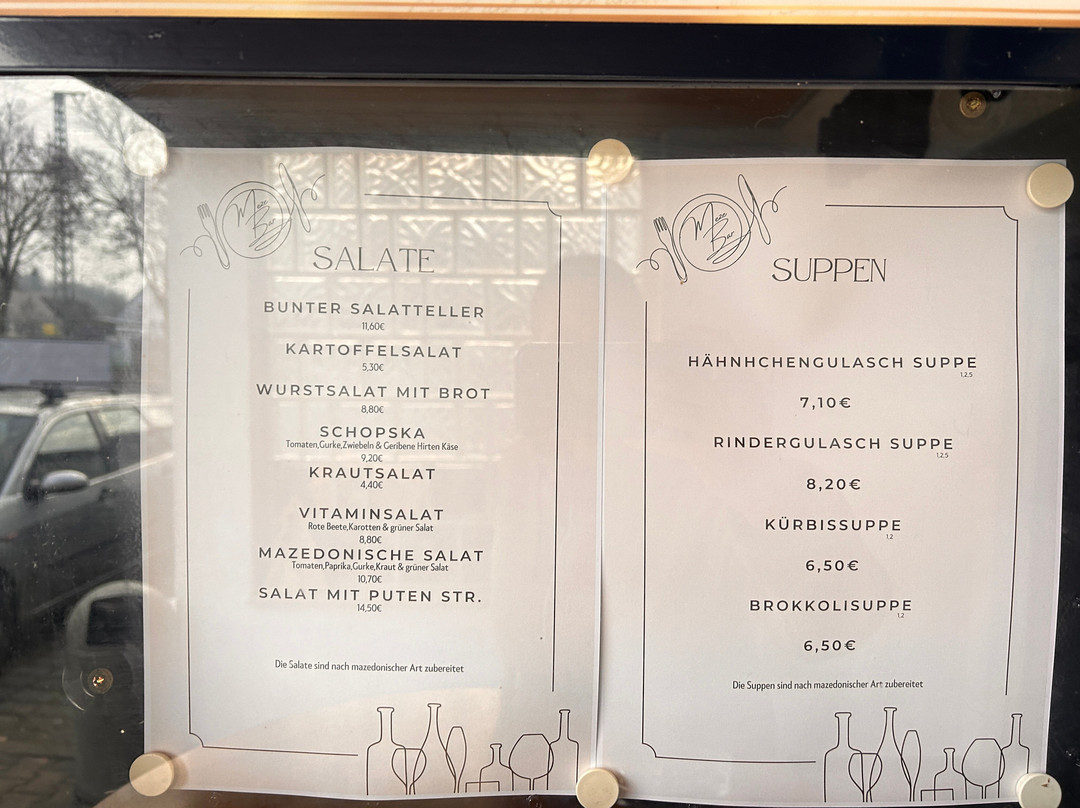 Meze
Bar
SALATE
BUNTER SALATTELLER
11,60€
KARTOFFELSALAT
5,30€
WURSTSALAT MIT BROT
8,80€
SCHOPSKA
Tomaten,Gurke,Zwiebeln & Geribene Hirten Käse
9,20€
KRAUTSALAT
4,40€
VITAMINSALAT
Rote Beete,Karotten & grüner Salat
8,80€
MAZEDONISCHE SALAT
Tomaten,Paprika,Gurke,Kraut & grüner Salat
10,70€
SALAT MIT PUTEN STR.
14,50€
Die Salate sind nach mazedonischer Art zubereitet
Meze
Bar
SUPPEN
HÄHNHCHENGULASCH SUPPE
1,2,5
7,10€
RINDERGULASCH SUPPE
1,2,5
8,20€
KÜRBISSUPPE
1,2
6,50€
BROKKOLISUPPE
1,2
6,50€
Die Suppen sind nach mazedonischer Art zubereitet